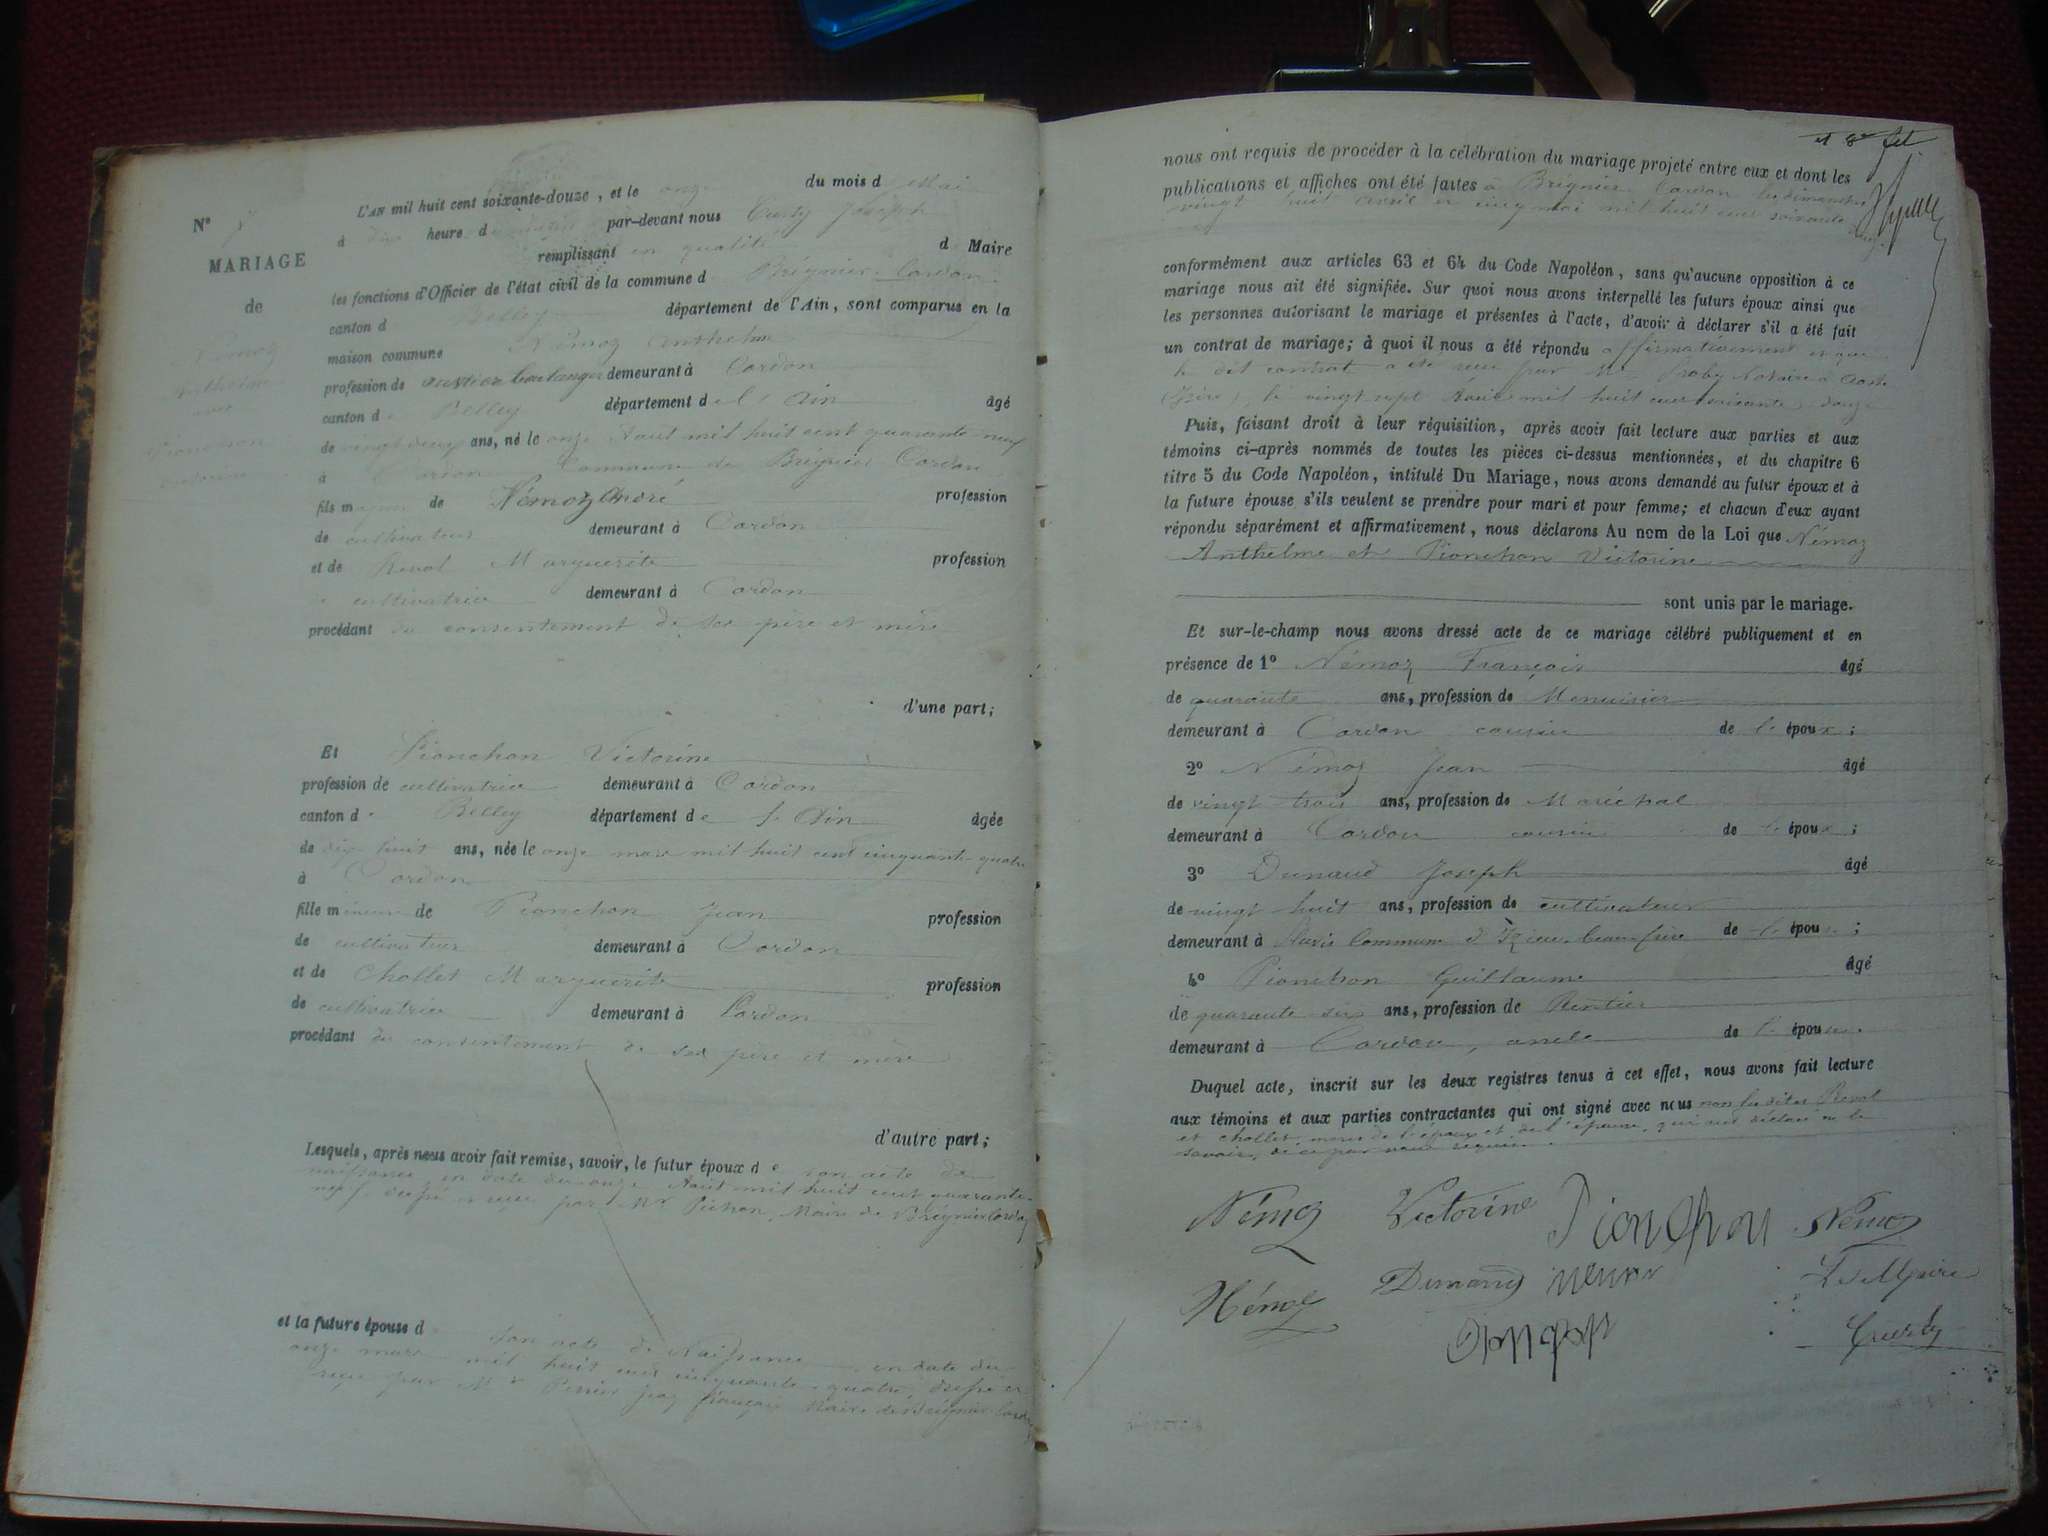 L'AN mil huit cent soixante-douze, et le onze du mois d Mai
N°
d dix heure d par-devant nous Joseph
MARIAGE
remplissant en qualité d Maire
de
les fonctions d'Officier de l'état civil de la commune d Brégnier-Cordon
canton d Belley département de l'Ain, sont comparus en la
Némoz
maison commune Némoz Anthelme
Anthelme
profession de boulanger demeurant à Cordon
avec
canton de Belley département de l'Ain âgé
Pionchon
de vingt deux ans, né le onze Aout mil huit cent quarante neuf
Victorine
à Cordon Commune de Brégnier Cordon
fils m de Némoz André profession
de cultivateur demeurant à Cordon
et de Revol Marguerite profession
cultivatrice demeurant à Cordon
procédant du consentement de ses père et mère
d'une part;
Et Pionchon Victorine
profession de cultivatrice demeurant à Cordon
canton de Belley département de l'Ain âgée
de dix huit ans, née le onze mars mil huit cent cinquante-quatre
à Cordon
fille mineure de Pionchon Jean profession
de cultivateur demeurant à Cordon
et de Chollet Marguerite profession
de cultivatrice demeurant à Cordon
procédant du consentement de ses père et mère
d'autre part;
Lesquels, après nous avoir fait remise, savoir, le futur époux de son acte de
naissance en date du onze Aout mil huit cent quarante
neuf, dressé et reçu par Mr Pichon, Maire de Brégnier Cordon
et la future épouse d son acte de Naissance en date du
onze mars mil huit cent cinquante-quatre, dressé et
reçu par Mr Perrin Jean François Maire de Brégnier-Cordon
nous ont requis de procéder à la célébration du mariage projeté entre eux et dont les
publications et affiches ont été faites à Brégnier-Cordon les dimanches
vingt huit avril et cinq mai mil huit cent soixante douze
conformément aux articles 63 et 64 du Code Napoléon, sans qu'aucune opposition à ce
mariage nous ait été signifiée. Sur quoi nous avons interpellé les futurs époux ainsi que
les personnes autorisant le mariage et présentes à l'acte, d'avoir à déclarer s'il a été fait
un contrat de mariage; à quoi il nous a été répondu affirmativement et que
le dit contrat a été reçu par Me Notaire à Aoste
(Isère), le vingt sept Avril mil huit cent soixante douze
Puis, faisant droit à leur réquisition, après avoir fait lecture aux parties et aux
témoins ci-après nommés de toutes les pièces ci-dessus mentionnées, et du chapitre 6
titre 5 du Code Napoléon, intitulé Du Mariage, nous avons demandé au futur époux et à
la future épouse s'ils veulent se prendre pour mari et pour femme; et chacun d'eux ayant
répondu séparément et affirmativement, nous déclarons Au nom de la Loi que Némoz
Anthelme et Pionchon Victorine
sont unis par le mariage.
Et sur-le-champ nous avons dressé acte de ce mariage célébré publiquement et en
présence de 1° Némoz François âgé
de quarante ans, profession de Menuisier
demeurant à Cordon cousin de l'époux;
2° Némoz Jean âgé
de vingt trois ans, profession de Maréchal
demeurant à Cordon cousin de l'époux;
3° Dunand Joseph âgé
de vingt huit ans, profession de cultivateur
demeurant à Commune d'Izieu beau-frère de l'époux;
4° Pionchon Guillaume âgé
de quarante six ans, profession de Rentier
demeurant à Cordon, oncle de l'épouse.
Duquel acte, inscrit sur les deux registres tenus à cet effet, nous avons fait lecture
aux témoins et aux parties contractantes qui ont signé avec nous non les dites Revol
et Chollet mères de l'époux et de l'épouse, qui ont déclaré ne le
savoir, de ce par nous requis.
Némoz Victorine Pionchon Némoz
Némoz Dunand Le Maire